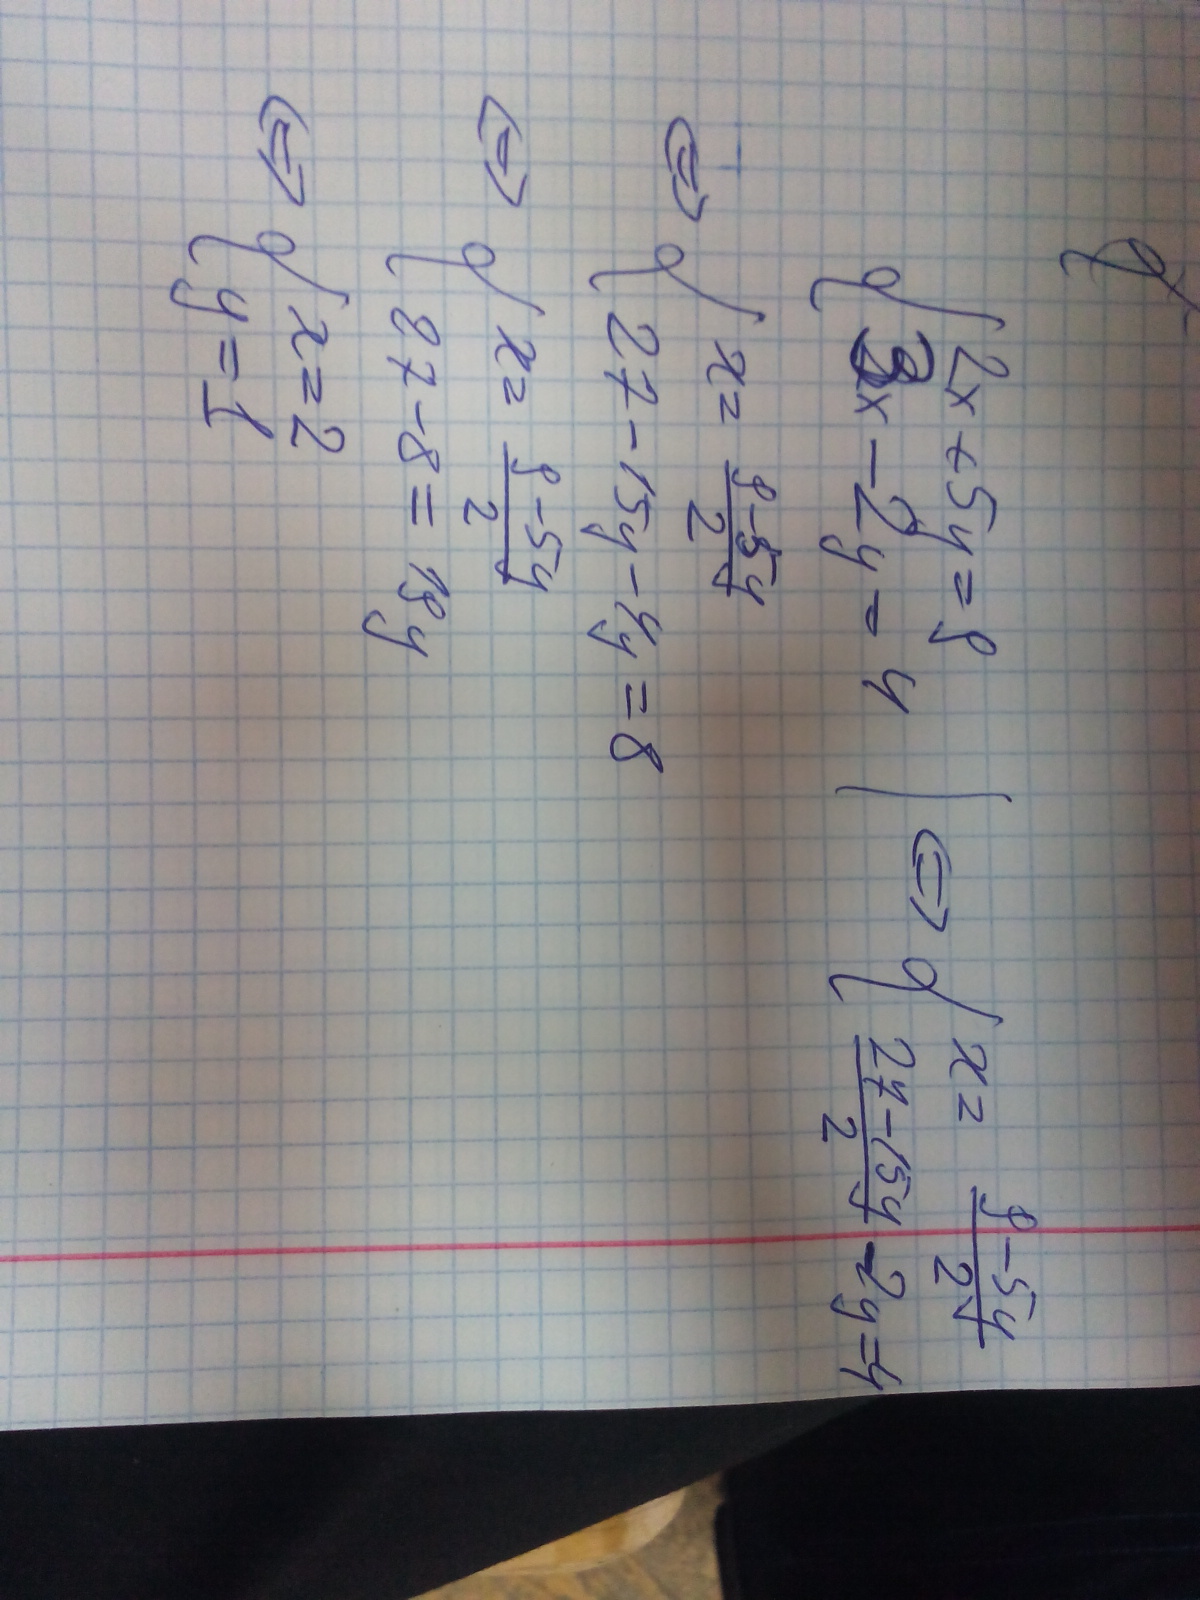 { 2x + 5y = 9
{ 3x - 2y = 4 | ⇔ { x = (9 - 5y)/2
{ (27 - 15y)/2 - 2y = 4
⇔ { x = (9 - 5y)/2
{ 27 - 15y - 4y = 8
⇔ { x = (9 - 5y)/2
{ 27 - 8 = 19y
⇔ { x = 2
{ y = 1